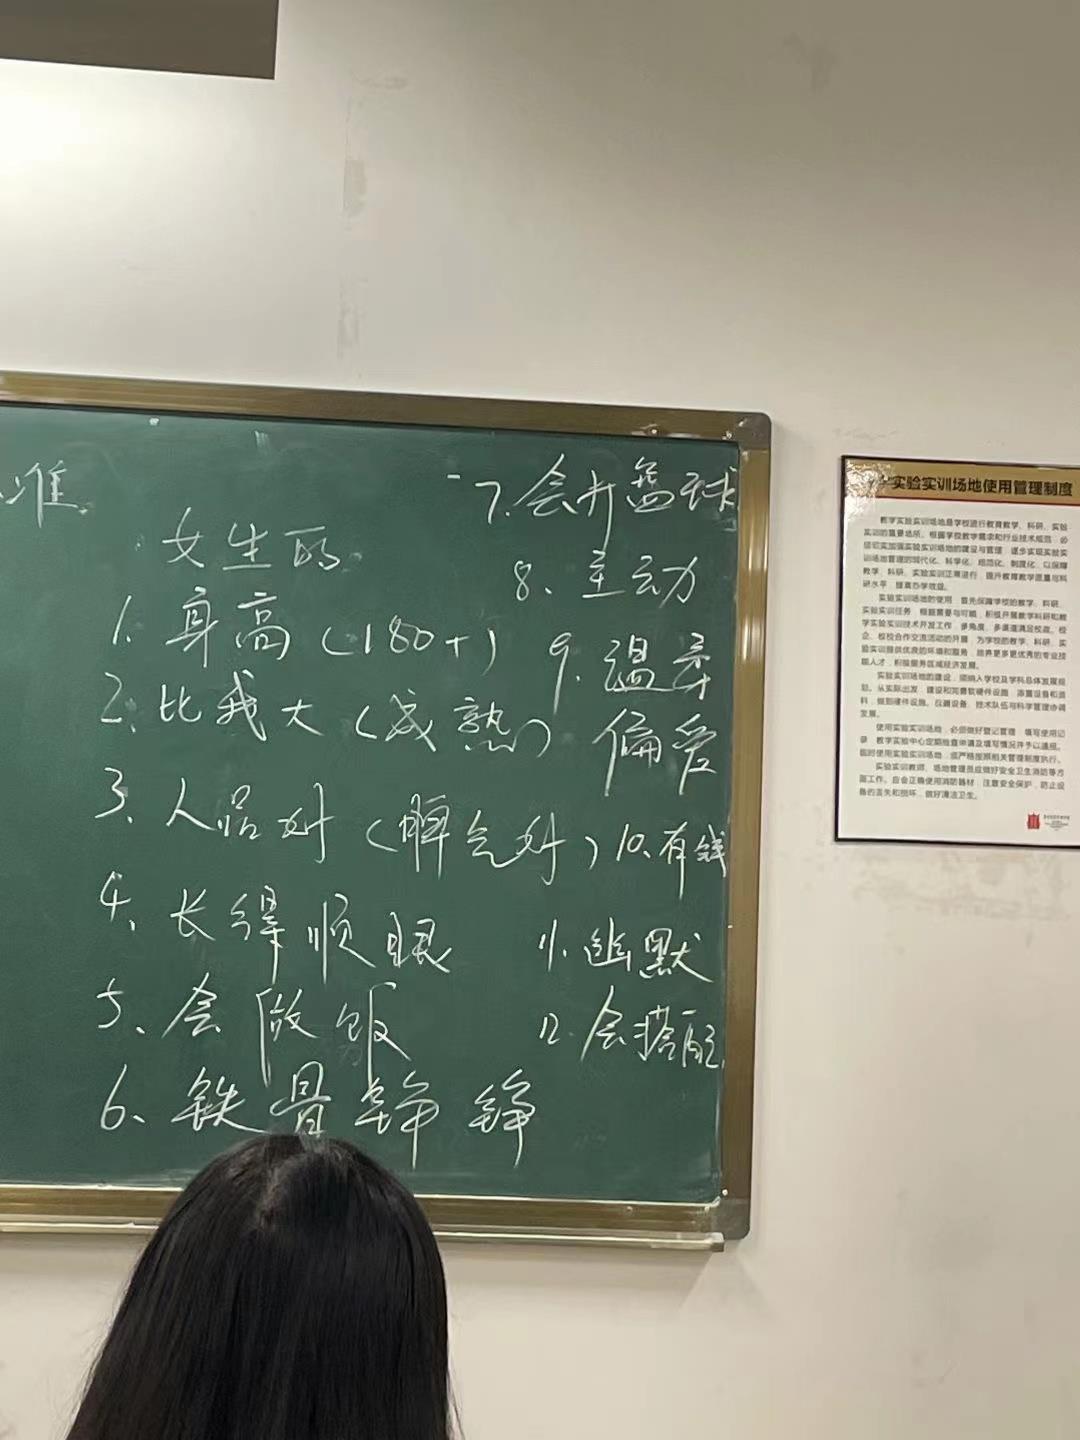 准
女生的
1. 身高（180+）
2. 比我大（成熟）
3、人品好（脾气好）
4、长得顺眼
5、会做饭
6、铁骨铮铮
7. 会打篮球
8、主动
9、温柔
偏爱
10、有钱
11. 幽默
12. 会搭配
实验实训场地使用管理制度
教学实验实训场地是学校进行教育教学、科研、实验
实训的重要场所。根据学校教学需求和行业技术规范，必
须切实加强实验实训场地的建设与管理，逐步实现实验实
训场地管理的现代化、科学化、规范化、制度化，以保障
教学、科研、实验实训正常进行，提升教育教学质量与科
研水平，提高办学效益。
实验实训场地的使用，首先保障学校的教学、科研、
实验实训任务，根据需要与可能，积极开展教学科研和教
学实验实训技术开发工作，多角度、多渠道满足校政、校
企、校校合作交流活动的开展，为学校的教学、科研、实
验实训提供优良的环境和服务，培养更多更优秀的专业技
能人才，积极服务区域经济发展。
实验实训场地的建设，须纳入学校及学科总体发展规
划。从实际出发，建设和完善软硬件设施，添置设备和资
料，做到硬件设施、仪器设备、技术队伍与科学管理协调
发展。
使用实验实训场地，必须做好登记管理，填写使用记
录，教学实验中心定期检查申请及填写情况并予以通报。
临时使用实验实训场地，须严格按照相关管理制度执行。
实验实训教师、场地管理员应做好安全卫生消防等方
面工作。应会正确使用消防器材，注意安全保护，防止设
备的丢失和损坏，做好清洁卫生。